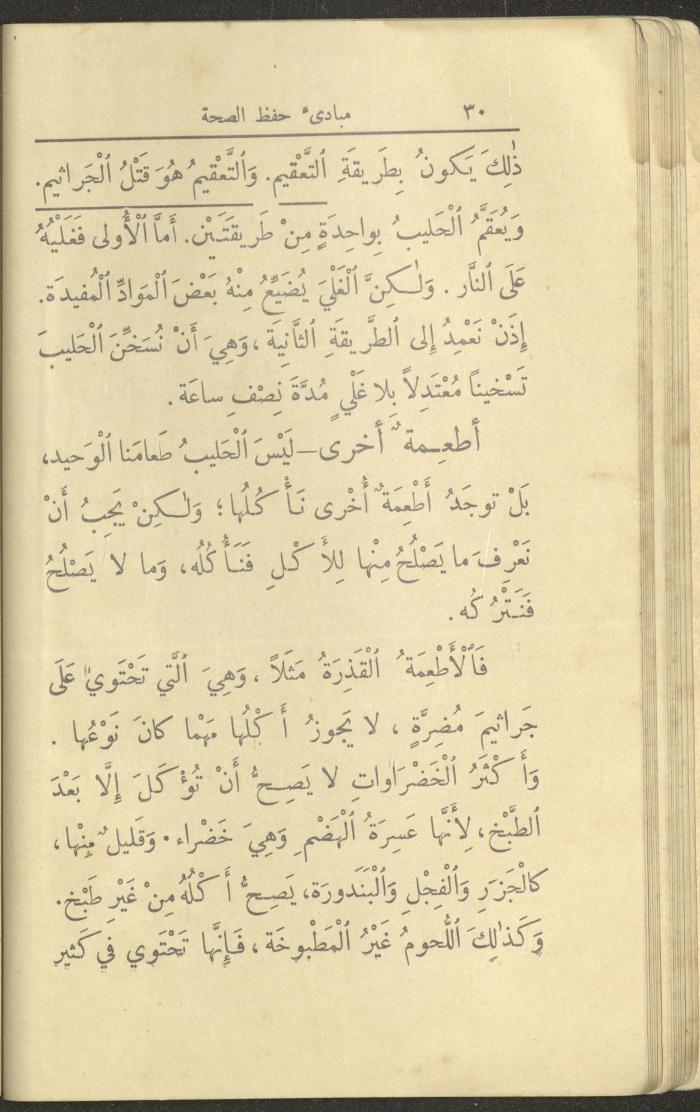 ٣٠ مبادىء حفظ الصحة
ذٰلِكَ يَكونُ بِطَريقَةِ ٱلتَّعْقيم. وَٱلتَّعْقيمُ هُوَ قَتْلُ ٱلْجَراثيم.
وَيُعَقَّمُ ٱلْحَليبُ بِواحِدَةٍ مِنْ طَريقَتَيْن. أَمَّا ٱلْأُولى فَغَلْيُهُ
عَلَى ٱلنَّار. وَلٰكِنَّ ٱلْغَلْيَ يُضَيِّعُ مِنْهُ بَعْضَ ٱلْمَوادِّ ٱلْمُفيدَة.
إِذَنْ نَعْمِدُ إِلى ٱلطَّريقَةِ ٱلثَّانِيَة، وَهِيَ أَنْ نُسَخِّنَ ٱلْحَليبَ
تَسْخيناً مُعْتَدِلاً بِلا غَلْيٍ مُدَّةَ نِصْفِ ساعَة.
أطعِمةٌ أخرى – لَيْسَ ٱلْحَليبُ طَعامَنا ٱلْوَحيد،
بَلْ توجَدُ أَطْعِمَةٌ أُخْرى نَأْكُلُها؛ وَلٰكِنْ يَجِبُ أَنْ
نَعْرِفَ ما يَصْلُحُ مِنْها لِلأَكْلِ فَنَأْكُلُه، وَما لا يَصْلُحُ
فَنَتْرُكُه.
فَٱلْأَطْعِمَةُ ٱلْقَذِرَةُ مَثَلاً، وَهِيَ ٱلَّتي تَحْتَوي عَلَى
جَراثيمَ مُضِرَّةٍ، لا يَجوزُ أَكْلُها مَهْما كانَ نَوْعُها.
وَأَكْثَرُ ٱلْخَضْرَاواتِ لا يَصِحُّ أَنْ تُؤْكَلَ إِلَّا بَعْدَ
ٱلطَّبْخ، لِأَنَّها عَسِرَةُ ٱلْهَضْمِ وَهِيَ خَضْراء. وَقَليلٌ مِنْها،
كالْجَزَرِ وَٱلْفِجْلِ وَٱلْبَنَدورَة، يَصِحُّ أَكْلُهُ مِنْ غَيْرِ طَبْخ.
وَكَذٰلِكَ ٱللُّحومُ غَيْرُ ٱلْمَطْبوخَة، فَإِنَّها تَحْتَوي في كَثير